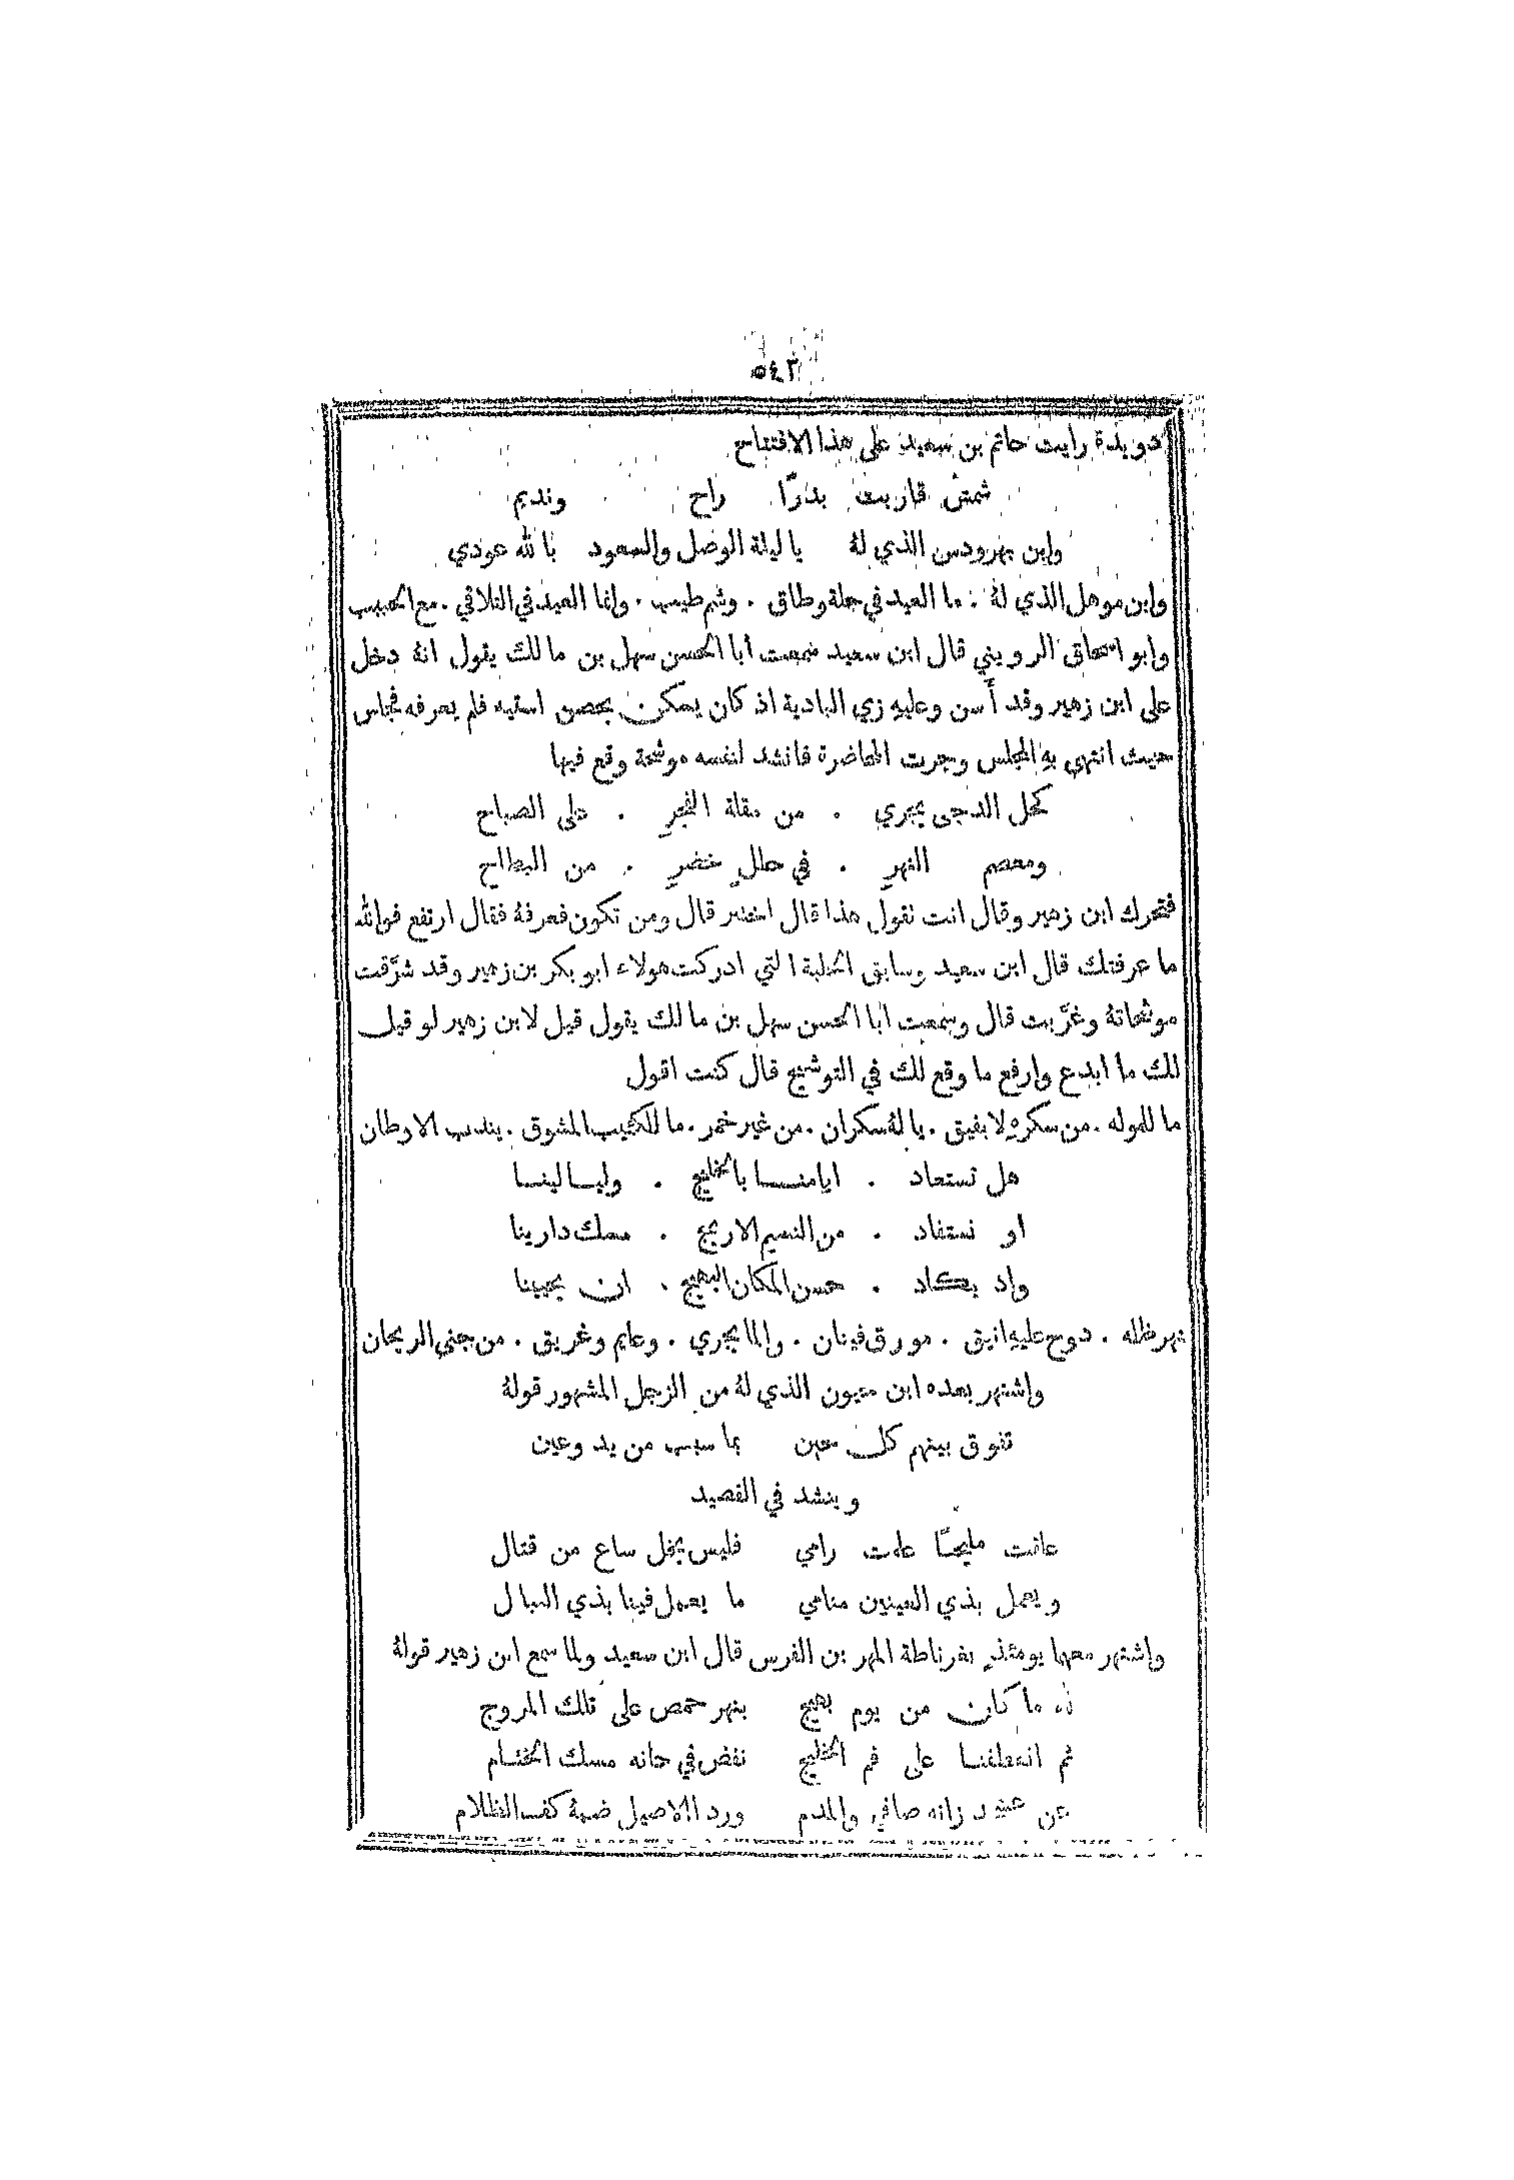 ٥٤٣
دويدة رايت حاتم بن سعيد على هذا الافتتاح
شمس قاربت بدرًا راح ونديم
وابن بهرودس الذي لهُ يا ليلة الوصل والسعود بالله عودي
وابن موهل الذي لهُ . ما العيد في حلة وطاق . وشم طيب . وانما العيد في التلاقي . مع الحبيب
وابو اسحاق الرويني قال ابن سعيد سمعت ابا الحسن سهل بن مالك يقول انهُ دخل
على ابن زهير وقد أسن وعليهِ زي البادية اذ كان يسكن بحصن استبه فلم يعرفه فجلس
حيث انتهى بهِ المجلس وجرت المحاضرة فانشد لنفسه موشحة وقع فيها
كحل الدجى يجري . من مقلة الفجرِ . على الصباح
ومعصم النهرِ . في حللٍ خضرٍ . من البطاح
فتحرك ابن زهير وقال انت تقول هذا قال اختبر قال ومن تكون فعرفهُ فقال ارتفع فوالله
ما عرفتك قال ابن سعيد وسابق الحلبة التي ادركت هولاء ابو بكر بن زهير وقد شرَّقت
موشحاتهُ وغرَّبت قال وسمعت ابا الحسن سهل بن مالك يقول قيل لابن زهير لو قيل
لك ما ابدع وارفع ما وقع لك في التوشيح قال كنت اقول
ما للموله . من سكرهِ لا يفيق . يا لهُ سكران . من غير خمر . ما للكئيب المشوق . يندب الاوطان
هل تستعاد . ايامنا بالخليج . وليالينا
او نستفاد . من النسيم الاريج . مسك دارينا
واد يكاد . حسن المكان البهيج . ان يحيينا
نهر ظله . دوح عليهِ انيق . مورق فينان . والما يجري . وعايم وغريق . من جنى الريحان
واشتهر بعده ابن حيون الذي لهُ من الزجل المشهور قولهُ
تفوق بينهم كل حين بما سبب من يد وعين
وينشد في القصيد
علقت مليحًا علمت رامي فليس يخل ساع من قتال
ويعمل بذي العينين منامي ما يعمل فينا بذي النبال
واشتهر معهما يومئذٍ بغرناطة المهر بن الفرس قال ابن سعيد ولما سمع ابن زهير قولهُ
لله ما كان من يوم بهيج بنهر حمص على تلك المروج
ثم انعطفنا على فم الخليج نفض في حانه مسك الختام
عن عسجد زانه صافي والمدم ورد الاصيل ضمهُ كف الظلام